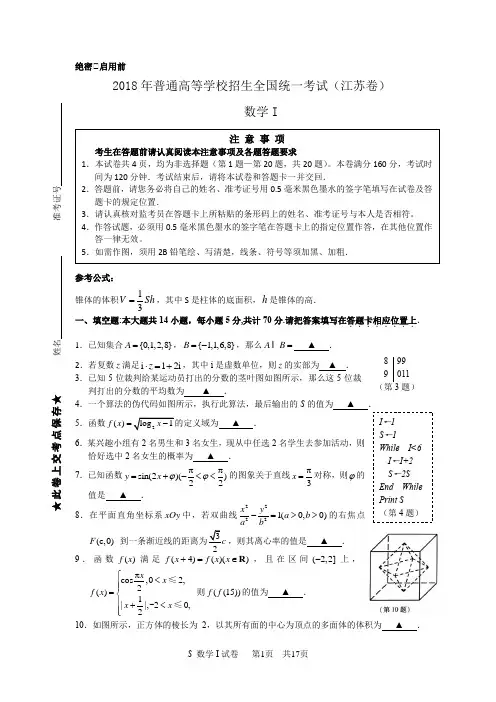 绝密★启用前
2018年普通高等学校招生全国统一考试（江苏卷）
数学Ⅰ
注 意 事 项
考生在答题前请认真阅读本注意事项及各题答题要求
1．本试卷共4页，均为非选择题（第1题—第20题，共20题）。本卷满分160分，考试时
间为120分钟。考试结束后，请将本试卷和答题卡一并交回．
2．答题前，请您务必将自己的姓名、准考证号用0.5毫米黑色墨水的签字笔填写在试卷及答
题卡的规定位置．
3．请认真核对监考员在答题卡上所粘贴的条形码上的姓名、准考证号与本人是否相符。
4．作答试题，必须用0.5毫米黑色墨水的签字笔在答题卡上的指定位置作答，在其他位置作
答一律无效。
5．如需作图，须用2B铅笔绘、写清楚，线条、符号等须加黑、加粗．
准考证号
姓名
★此卷上交考点保存★
参考公式：
锥体的体积V = 1/3 Sh，其中S是柱体的底面积，h是锥体的高．
一、填空题:本大题共14小题，每小题5分,共计70分.请把答案填写在答题卡相应位置上．
1．已知集合A={0,1,2,8}，B={−1,1,6,8}，那么A I B= ▲ ．
2．若复数z满足i·z=1+2i，其中i是虚数单位，则z的实部为 ▲ ．
3．已知5位裁判给某运动员打出的分数的茎叶图如图所示，那么这5位裁
判打出的分数的平均数为 ▲ ．
8 | 99
9 | 011
（第3题）
4．一个算法的伪代码如图所示，执行此算法，最后输出的S的值为 ▲ ．
5．函数f(x)=√(log₂ x−1)的定义域为 ▲ ．
6．某兴趣小组有2名男生和3名女生，现从中任选2名学生去参加活动，则
恰好选中2名女生的概率为 ▲ ．
7．已知函数y=sin(2x+φ)(−π/2<φ<π/2)的图象关于直线x=π/3对称，则φ的
值是 ▲ ．
I←1
S←1
While I<6
I←I+2
S←2S
End While
Print S
（第4题）
8．在平面直角坐标系xOy中，若双曲线x²/a²−y²/b²=1(a>0,b>0)的右焦点
F(c,0)到一条渐近线的距离为√3/2 c，则其离心率的值是 ▲ ．
9．函数f(x)满足f(x+4)=f(x)(x∈R)，且在区间(−2,2]上，
f(x)={cos πx/2,0<x≤2, |x+1/2|,-2<x≤0, 则f(f(15))的值为 ▲ ．
（第10题）
10．如图所示，正方体的棱长为2，以其所有面的中心为顶点的多面体的体积为 ▲ ．
S 数学Ⅰ试卷 第1页 共17页